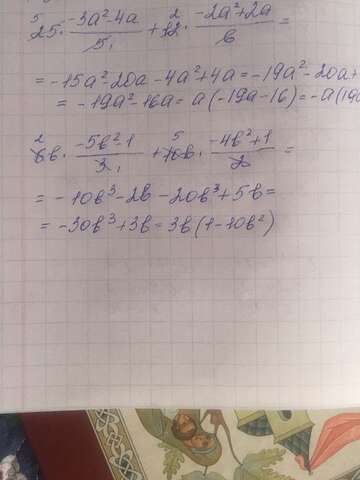 5 2
25 · (-3a² - 4a)/5 + 12 · (-2a² + 2a)/6 =
= -15a² - 20a - 4a² + 4a = -19a² - 20a +
= -19a² - 16a = a(-19a - 16) = -a(19a
2 5
6b · (-5b² - 1)/3 + 10b · (-4b² + 1)/2 =
= -10b³ - 2b - 20b³ + 5b =
= -30b³ + 3b = 3b(1 - 10b²)